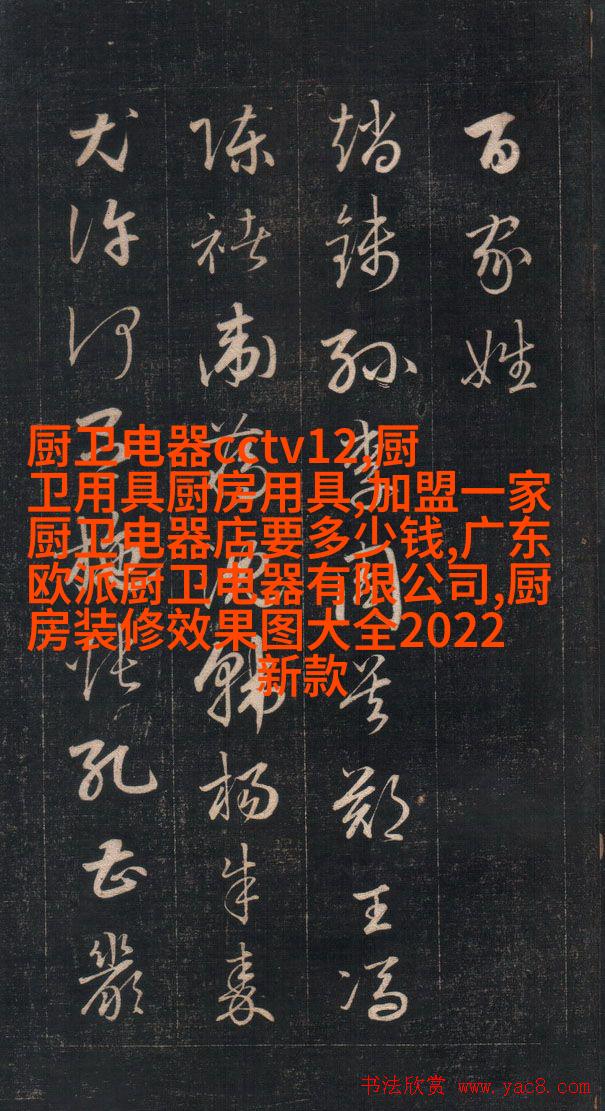 百家姓
趙錢孫李周吳鄭王馮
陳褚衛蔣沈韓楊朱秦
尤許何呂施張孔曹嚴
厨卫电器cctv12,厨
卫用具厨房用具,加盟一家
厨卫电器店要多少钱,广东
欧派厨卫电器有限公司,厨
房装修效果图大全2022
新款
书法欣赏 www.yac8.com